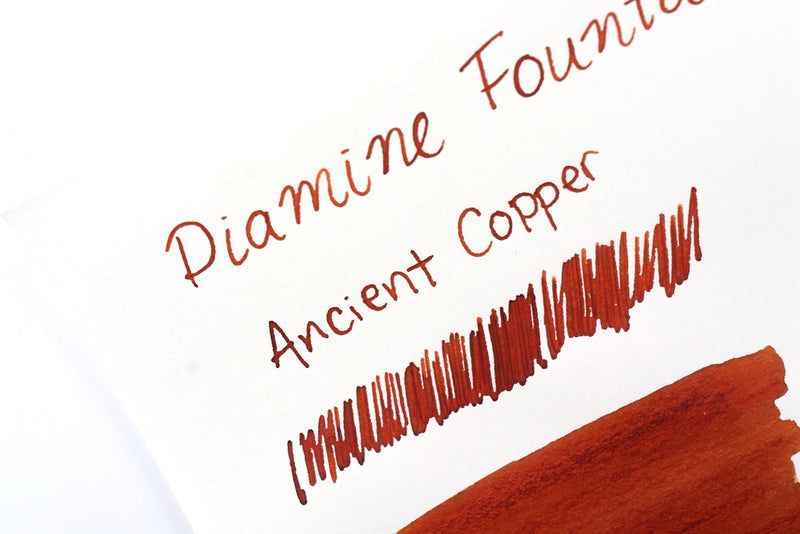 Diamine Founta
Ancient Copper